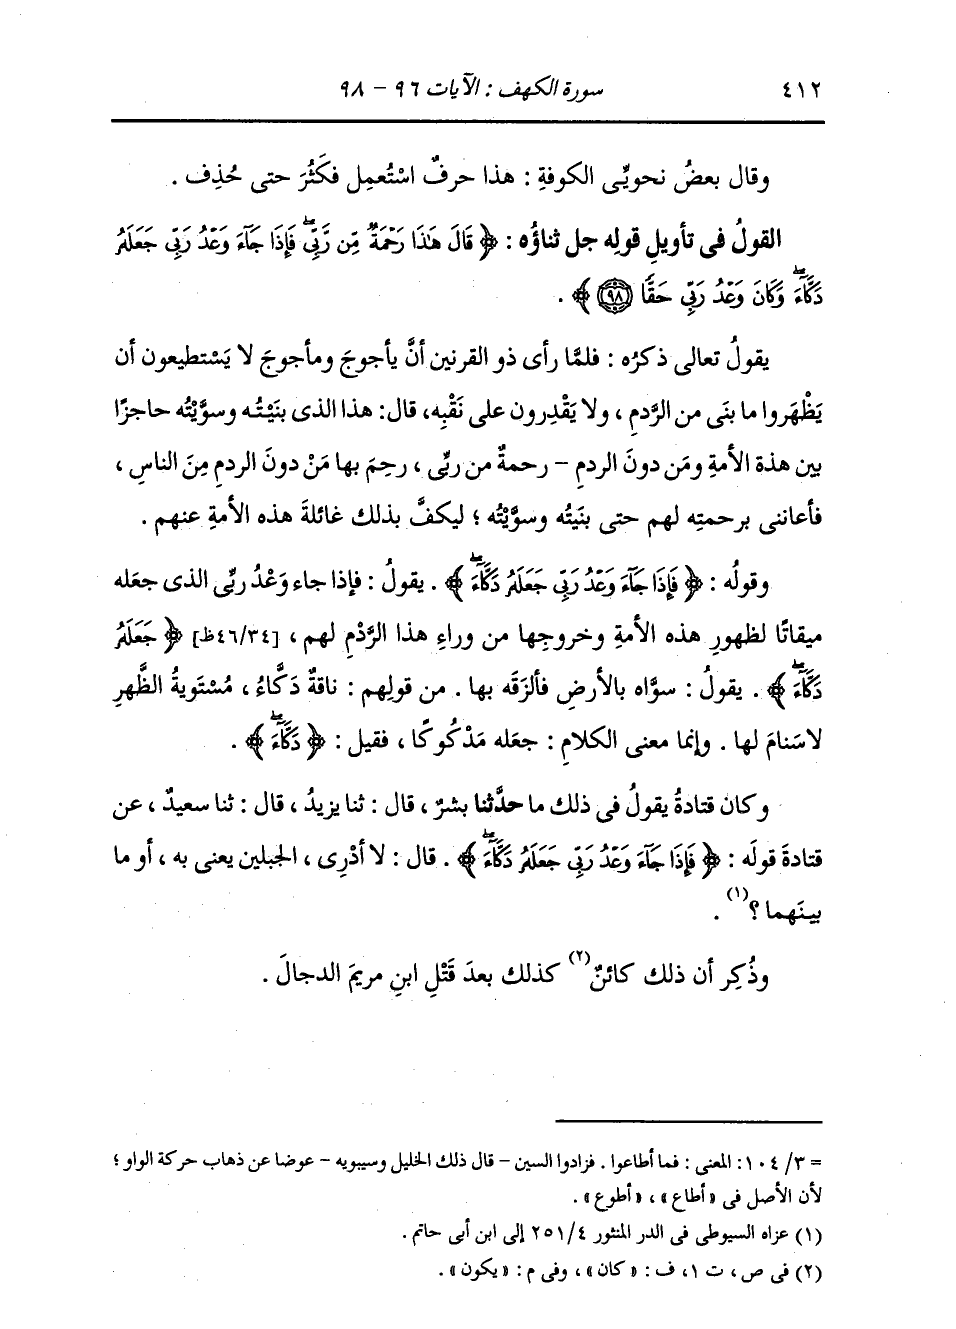 ٤١٢ سورة الكهف : الآيات ٩٦ - ٩٨
وقال بعضُ نحويِّى الكوفةِ : هذا حرفٌ اسْتُعمِل فكَثُرَ حتى حُذِف .
القولُ فى تأويلِ قولِه جل ثناؤُه : ﴿ قَالَ هَٰذَا رَحْمَةٌ مِّن رَّبِّىۖ فَإِذَا جَآءَ وَعْدُ رَبِّى جَعَلَهُۥ
دَكَّآءَۖ وَكَانَ وَعْدُ رَبِّى حَقًّا ﴿٩٨﴾ ﴾ .
يقولُ تعالى ذكرُه : فلمَّا رأى ذو القرنين أنَّ يأجوجَ ومأجوجَ لا يَسْتطيعون أن
يَظْهَروا ما بنَى من الرَّدمِ ، ولا يَقْدِرون على نَقْبِه، قال: هذا الذى بنَيْتُه وسوَّيْتُه حاجزًا
بين هذة الأمةِ ومَن دونَ الردمِ - رحمةٌ من ربِّى ، رحِمَ بها مَنْ دونَ الردمِ مِنَ الناسِ ،
فأعاننى برحمتِه لهم حتى بنَيتُه وسوَّيْتُه ؛ ليكفَّ بذلك غائلةَ هذه الأمةِ عنهم .
وقولُه : ﴿ فَإِذَا جَآءَ وَعْدُ رَبِّى جَعَلَهُۥ دَكَّآءَۖ ﴾ . يقولُ : فإذا جاء وَعْدُ ربِّى الذى جعَله
ميقاتًا لظهورِ هذه الأمةِ وخروجِها من وراءِ هذا الرَّدْمِ لهم ، [٤٦/٣٤ظ] ﴿ جَعَلَهُۥ
دَكَّآءَۖ ﴾ . يقولُ : سوَّاه بالأرضِ فألزَقَه بها . من قولِهم : ناقةٌ دَكَّاءُ ، مُسْتويةُ الظَّهرِ
لا سَنامَ لها . وإنما معنى الكلامِ : جعَله مَدْكُوكًا ، فقيل : ﴿ دَكَّآءَۖ ﴾ .
وكان قتادةُ يقولُ فى ذلك ما حدَّثنا بشرٌ ، قال : ثنا يزيدُ ، قال : ثنا سعيدٌ ، عن
قتادةَ قولَه : ﴿ فَإِذَا جَآءَ وَعْدُ رَبِّى جَعَلَهُۥ دَكَّآءَۖ ﴾ . قال : لا أدْرِى ، الجبلين يعنى به ، أو ما
بينَهما ؟(١) .
وذُكِر أن ذلك كائنٌ(٢) كذلك بعدَ قَتْلِ ابنِ مريمَ الدجالَ .
= ٣/ ١٠٤: المعنى : فما أطاعوا . فزادوا السين - قال ذلك الخليل وسيبويه - عوضا عن ذهاب حركة الواو ؛
لأن الأصل فى « أطاع » ، « أطوع » .
(١) عزاه السيوطى فى الدر المنثور ٢٥١/٤ إلى ابن أبى حاتم .
(٢) فى ص ، ت ١، ف : « كان » ، وفى م : « يكون » .